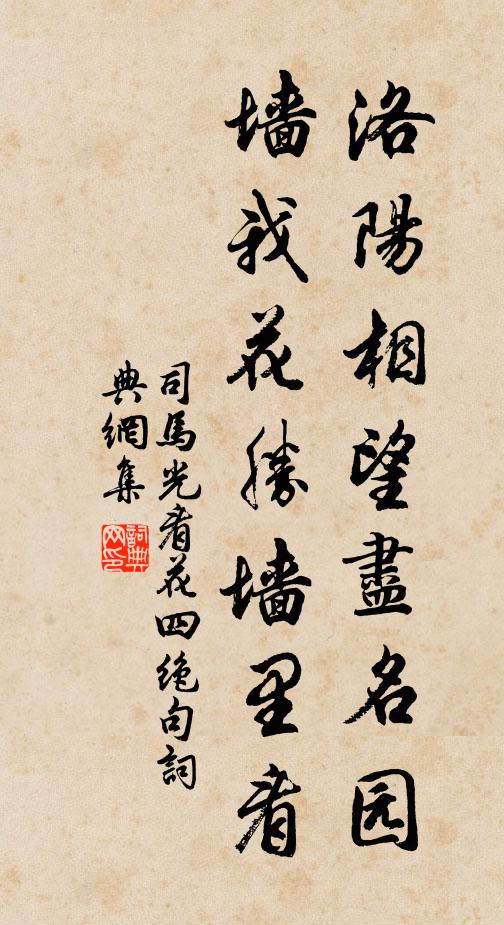 洛陽相望盡名园
墙我花勝墙里看
司馬光看花四絶句詞
典網集
詞典
网印